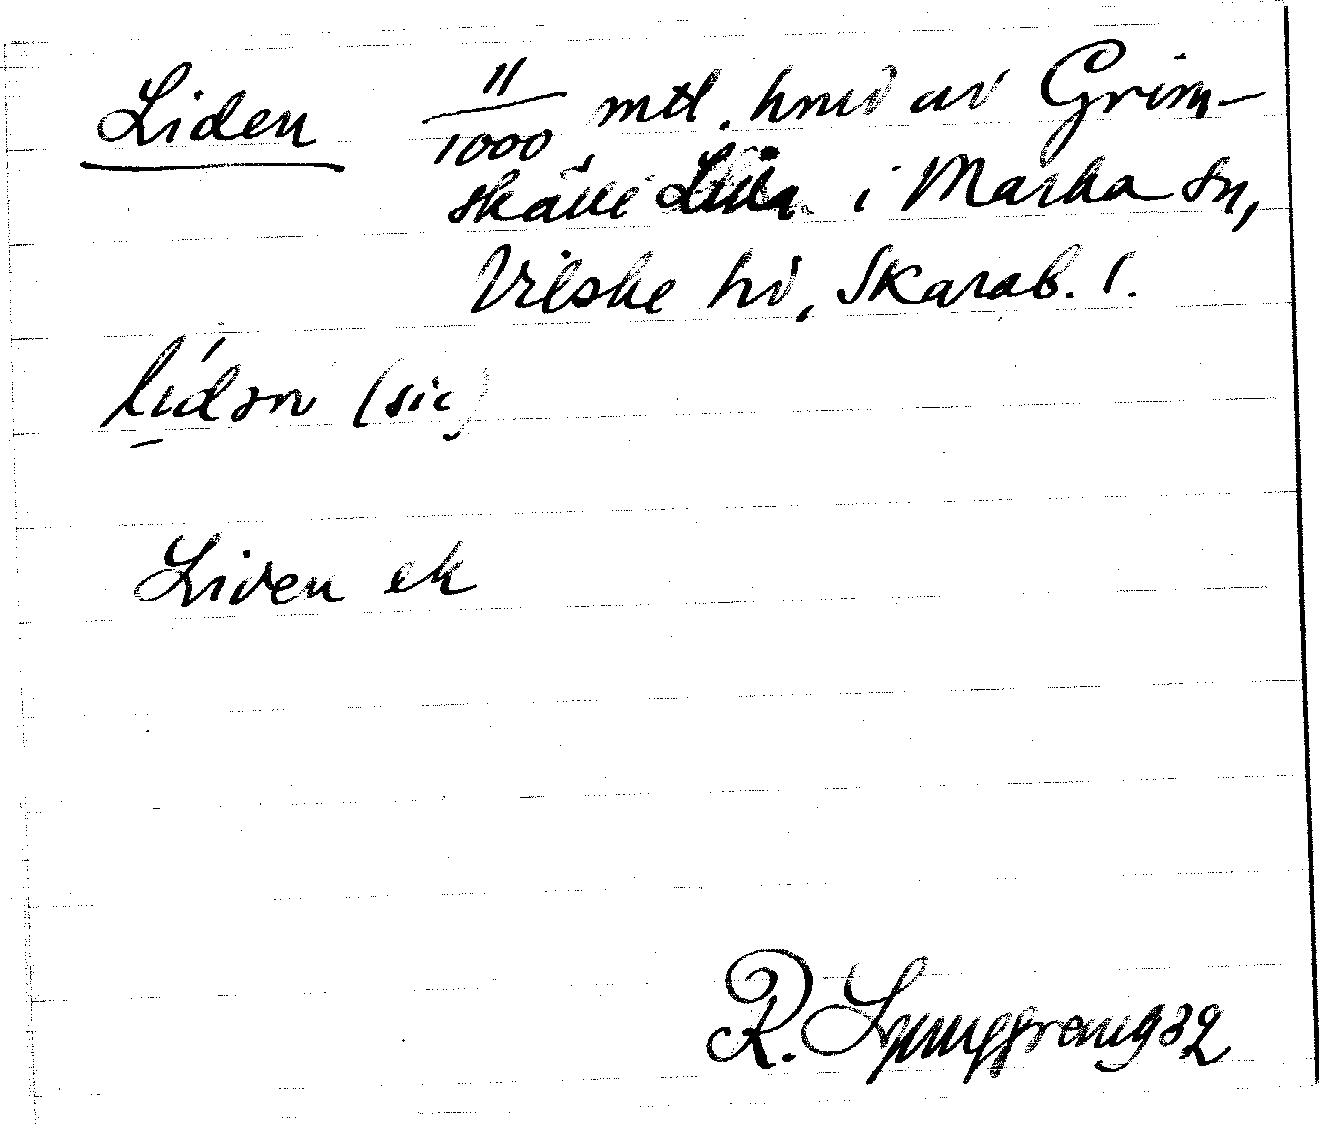 Liden 11/1000 mtl. hmd av Grim-
skälle Lilla i Marka sn,
Vilske hd, Skarab. l.
lídən (sic)
Liden ek
R. Ljunggren 1932